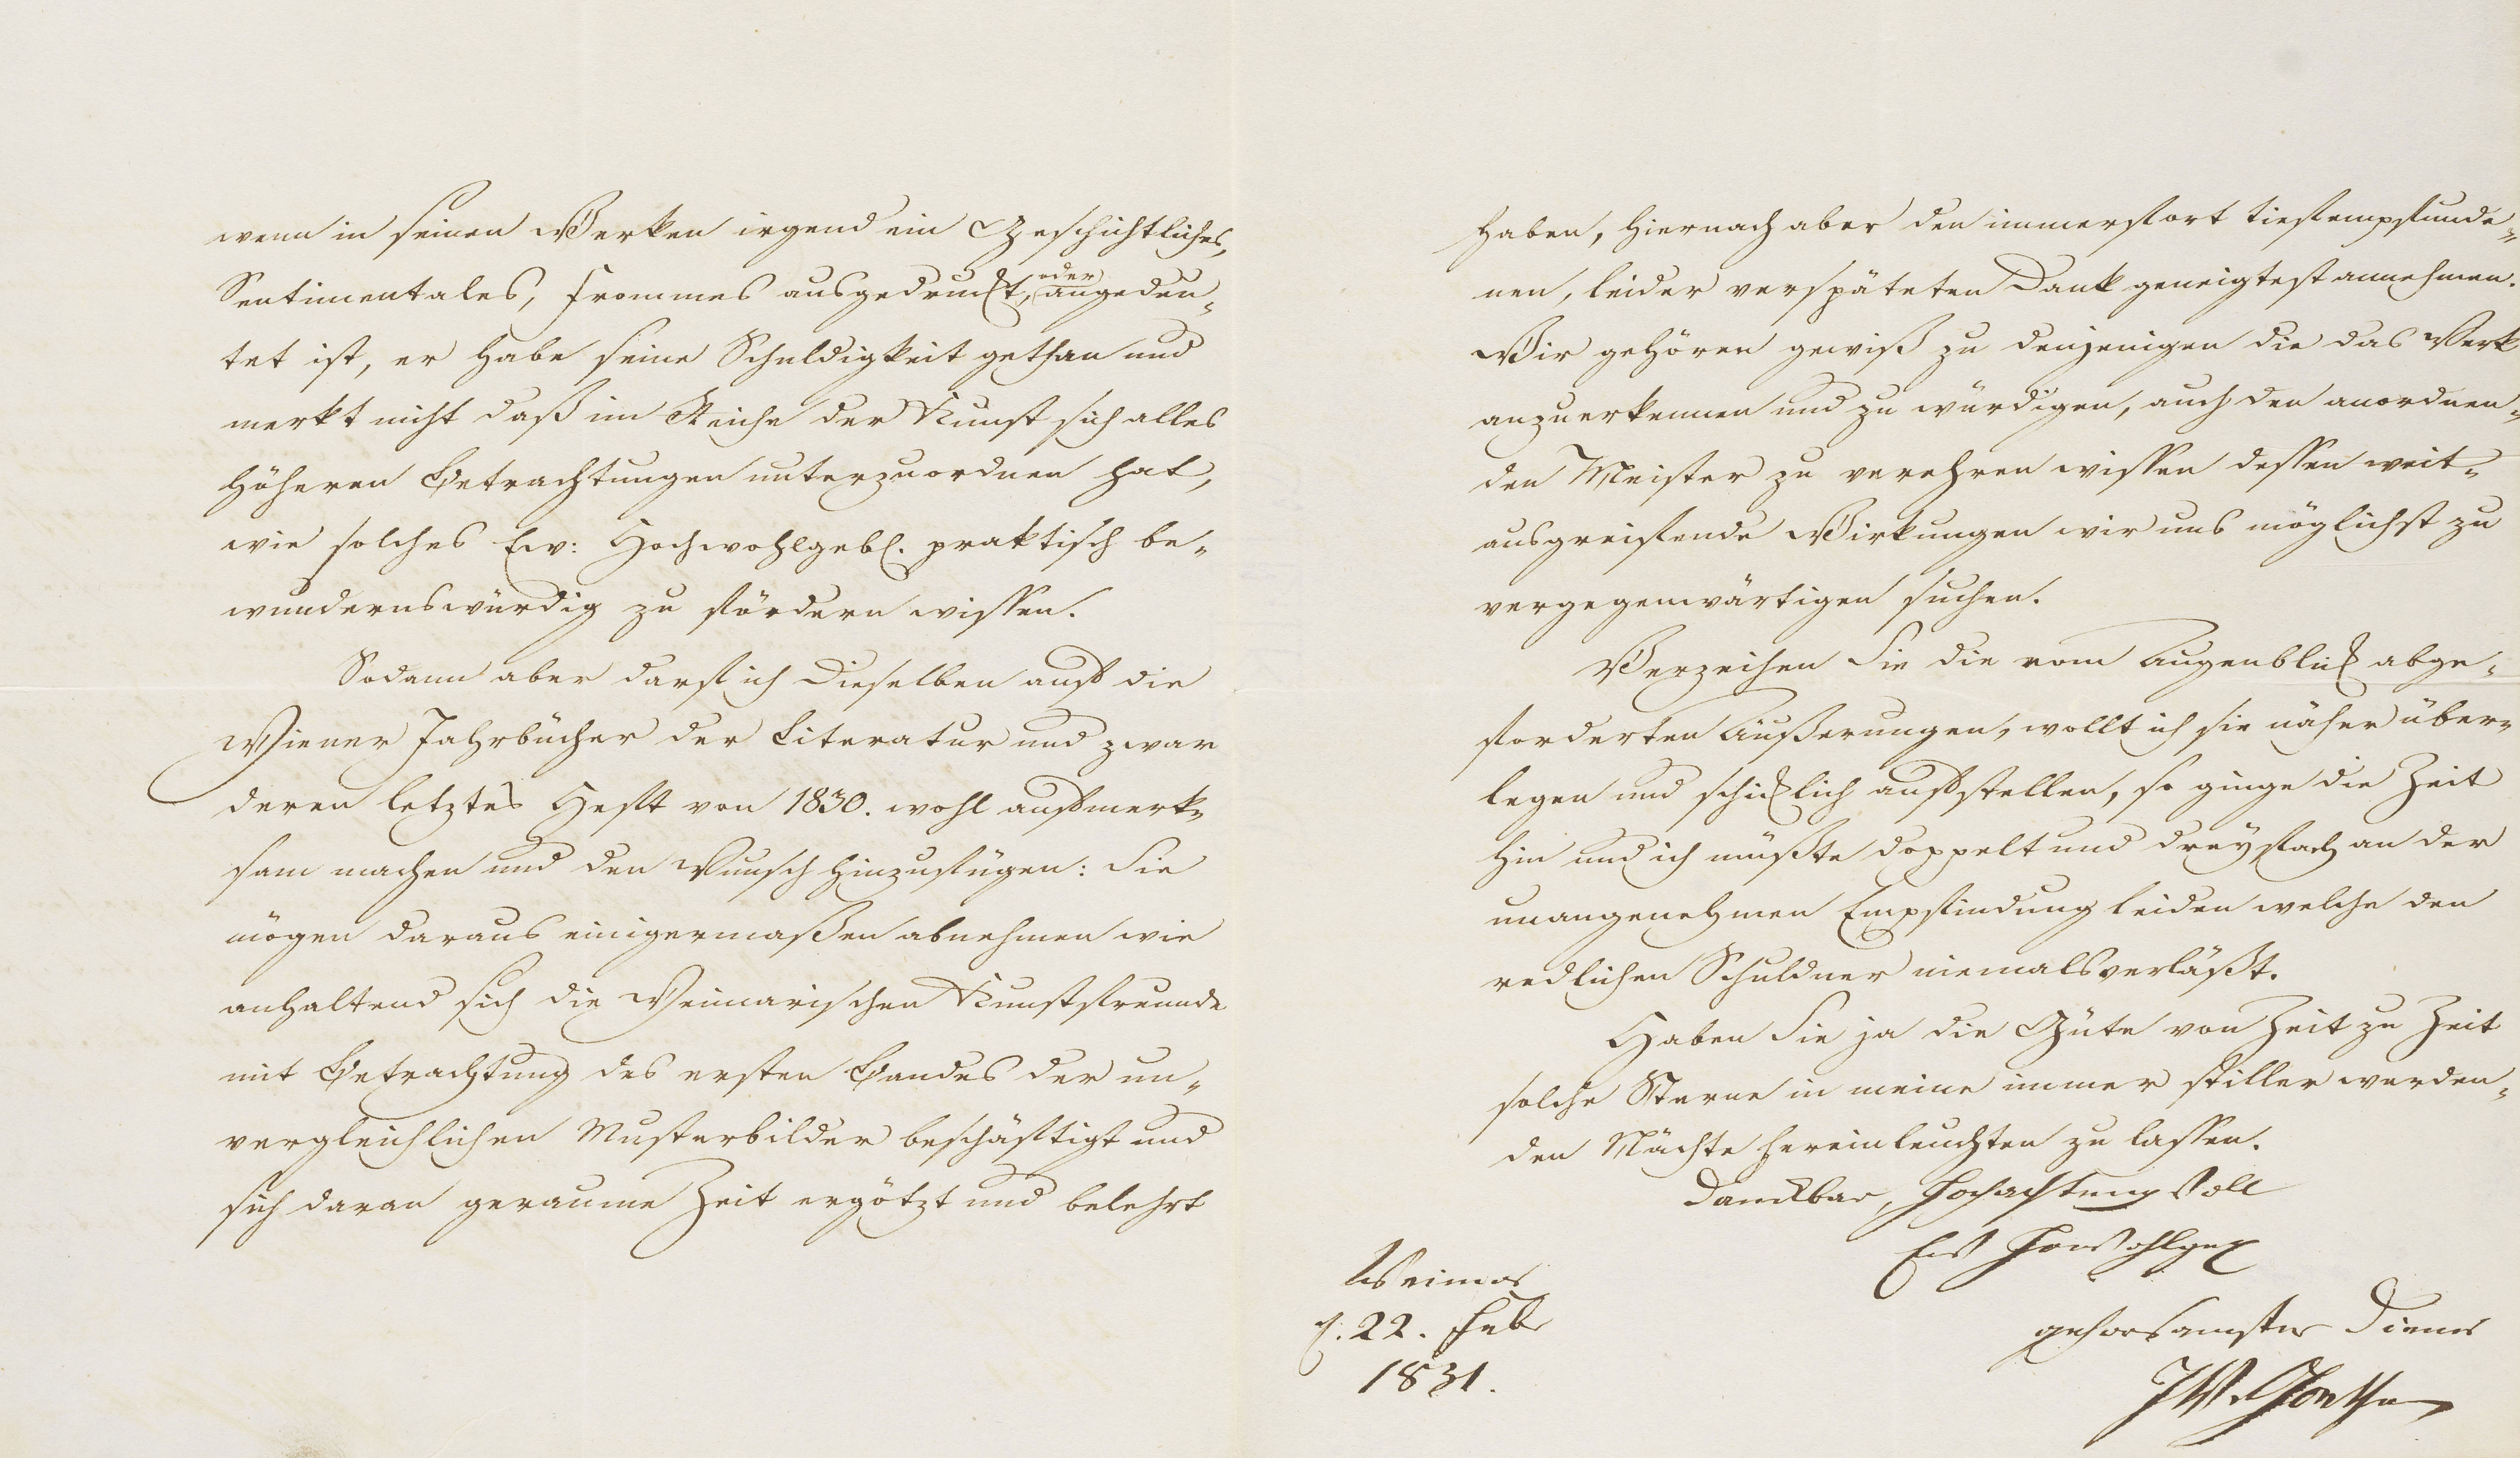 wenn in seinen Werken irgend ein Geschichtliches,
Sentimentales, Frommes ausgedruckt, oder angedeu-
tet ist, er habe seine Schuldigkeit gethan und
merkt nicht daß im Reiche der Kunst sich alles
höheren Betrachtungen unterzuordnen hat,
wie solches Ew: Hochwohlgebl. praktisch be-
wundernswürdig zu fördern wissen.
Sodann aber darf ich Dieselben auf die
Wiener Jahrbücher der Literatur und zwar
deren letztes Heft von 1830. wohl aufmerk-
sam machen und den Wunsch hinzufügen: Sie
mögen daraus einigermaßen abnehmen wie
anhaltend sich die Weimarischen Kunstfreunde
mit Betrachtung des ersten Bandes der un-
vergleichlichen Musterbilder beschäftigt und
sich daran geraume Zeit ergötzt und belehrt
haben, hiernach aber den immerfort tiefempfunde-
nen, leider verspäteten Dank geneigtest annehmen.
Wir gehören gewiß zu denjenigen die das Werk
anzuerkennen und zu würdigen, auch den anordnen-
den Meister zu verehren wissen dessen weit-
ausgreifende Wirkungen wir uns möglichst zu
vergegenwärtigen suchen.
Verzeihen Sie die vom Augenblick abge-
forderten Äußerungen, wollt ich sie näher über-
legen und schicklich aufstellen, so ginge die Zeit
hin und ich müßte doppelt und dreyfach an der
unangenehmen Empfindung leiden welche den
redlichen Schuldner niemals verläßt.
Haben Sie ja die Güte von Zeit zu Zeit
solche Sterne in meine immer stiller werden-
den Nächte hereinleuchten zu lassen.
Danckbar, hochachtungsvoll
Ew Howohlgeb
gehorsamster Diener
JWvGoethe
Weimar
d. 22. Febr
1831.